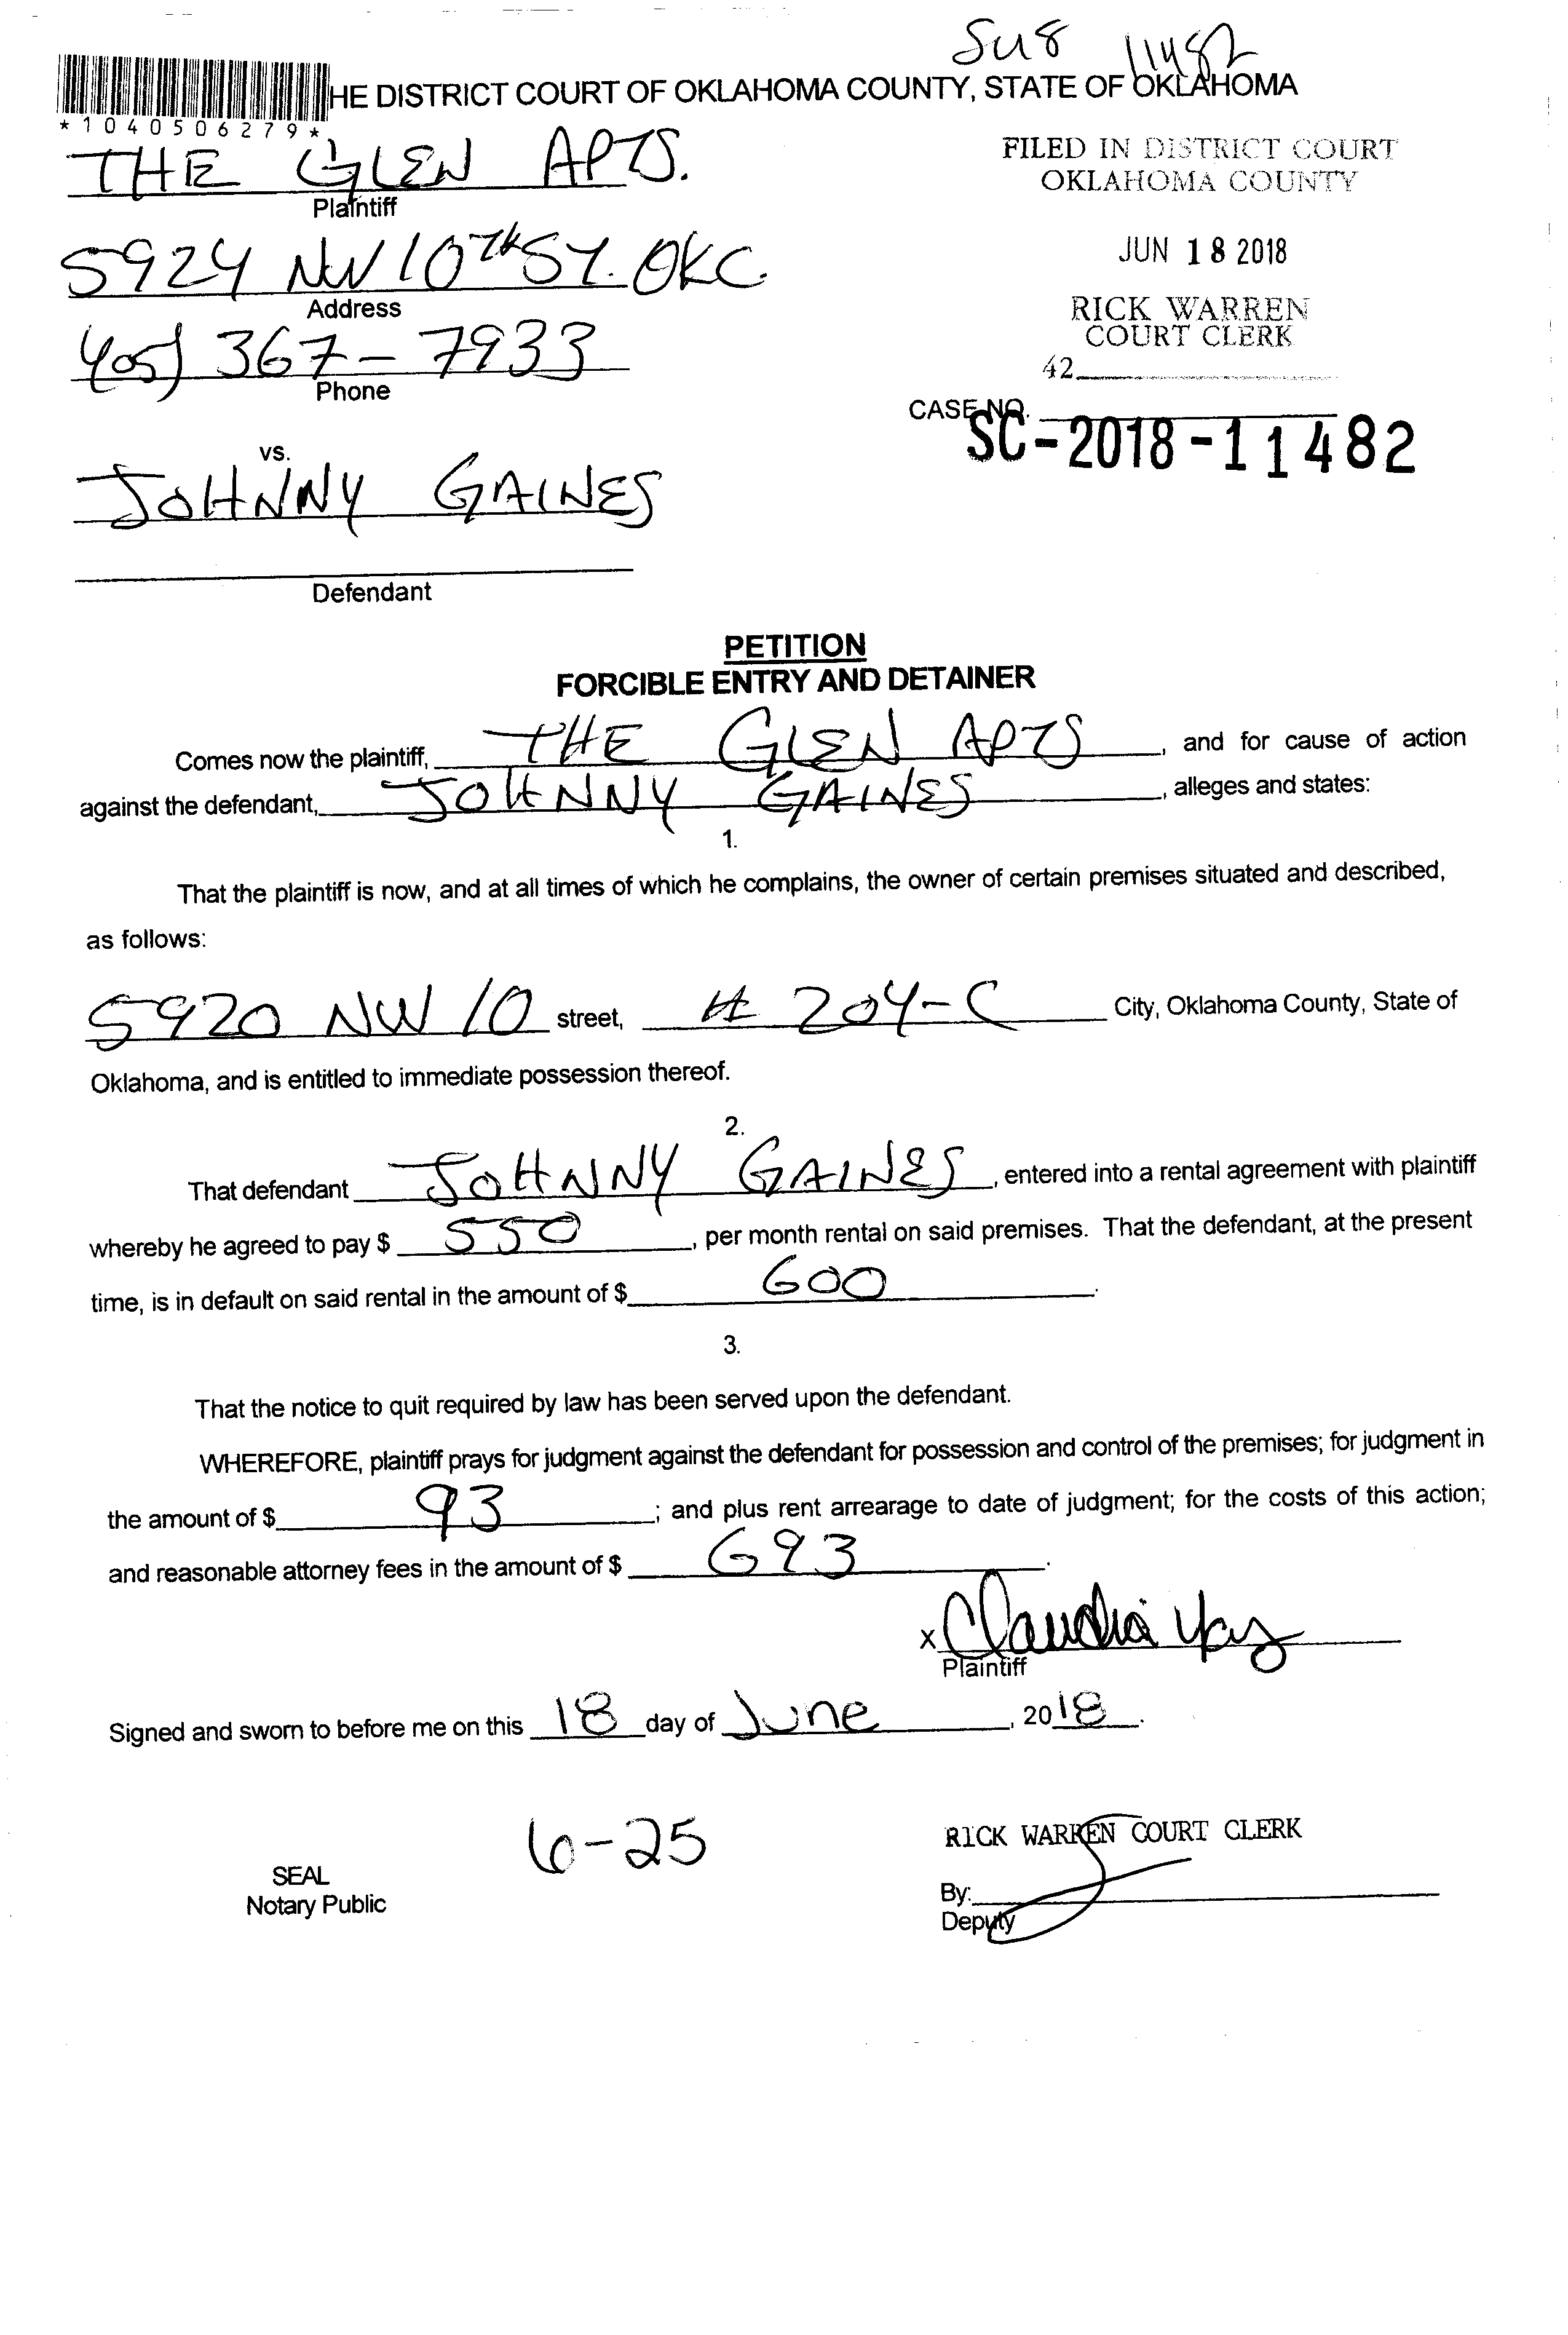 SU8 11482
HE DISTRICT COURT OF OKLAHOMA COUNTY, STATE OF OKLAHOMA
*1040506279*
THE GLEN APTS.
Plaintiff
FILED IN DISTRICT COURT
OKLAHOMA COUNTY
5924 NW 10TH ST. OKC.
Address
JUN 18 2018
(405) 367-7933
Phone
RICK WARREN
COURT CLERK
42
CASE NO.
SC-2018-11482
vs.
JOHNNY GAINES
Defendant
PETITION
FORCIBLE ENTRY AND DETAINER
Comes now the plaintiff, THE GLEN APTS, and for cause of action
against the defendant, JOHNNY GAINES, alleges and states:
1.
That the plaintiff is now, and at all times of which he complains, the owner of certain premises situated and described,
as follows:
5920 NW 10 street, # 204-C City, Oklahoma County, State of
Oklahoma, and is entitled to immediate possession thereof.
2.
That defendant JOHNNY GAINES, entered into a rental agreement with plaintiff
whereby he agreed to pay $ 550, per month rental on said premises. That the defendant, at the present
time, is in default on said rental in the amount of $ 600.
3.
That the notice to quit required by law has been served upon the defendant.
WHEREFORE, plaintiff prays for judgment against the defendant for possession and control of the premises; for judgment in
the amount of $ 93; and plus rent arrearage to date of judgment; for the costs of this action;
and reasonable attorney fees in the amount of $ 693.
x Claudia
Plaintiff
Signed and sworn to before me on this 18 day of June, 2018.
6-25
SEAL
Notary Public
RICK WARREN COURT CLERK
By:
Deputy